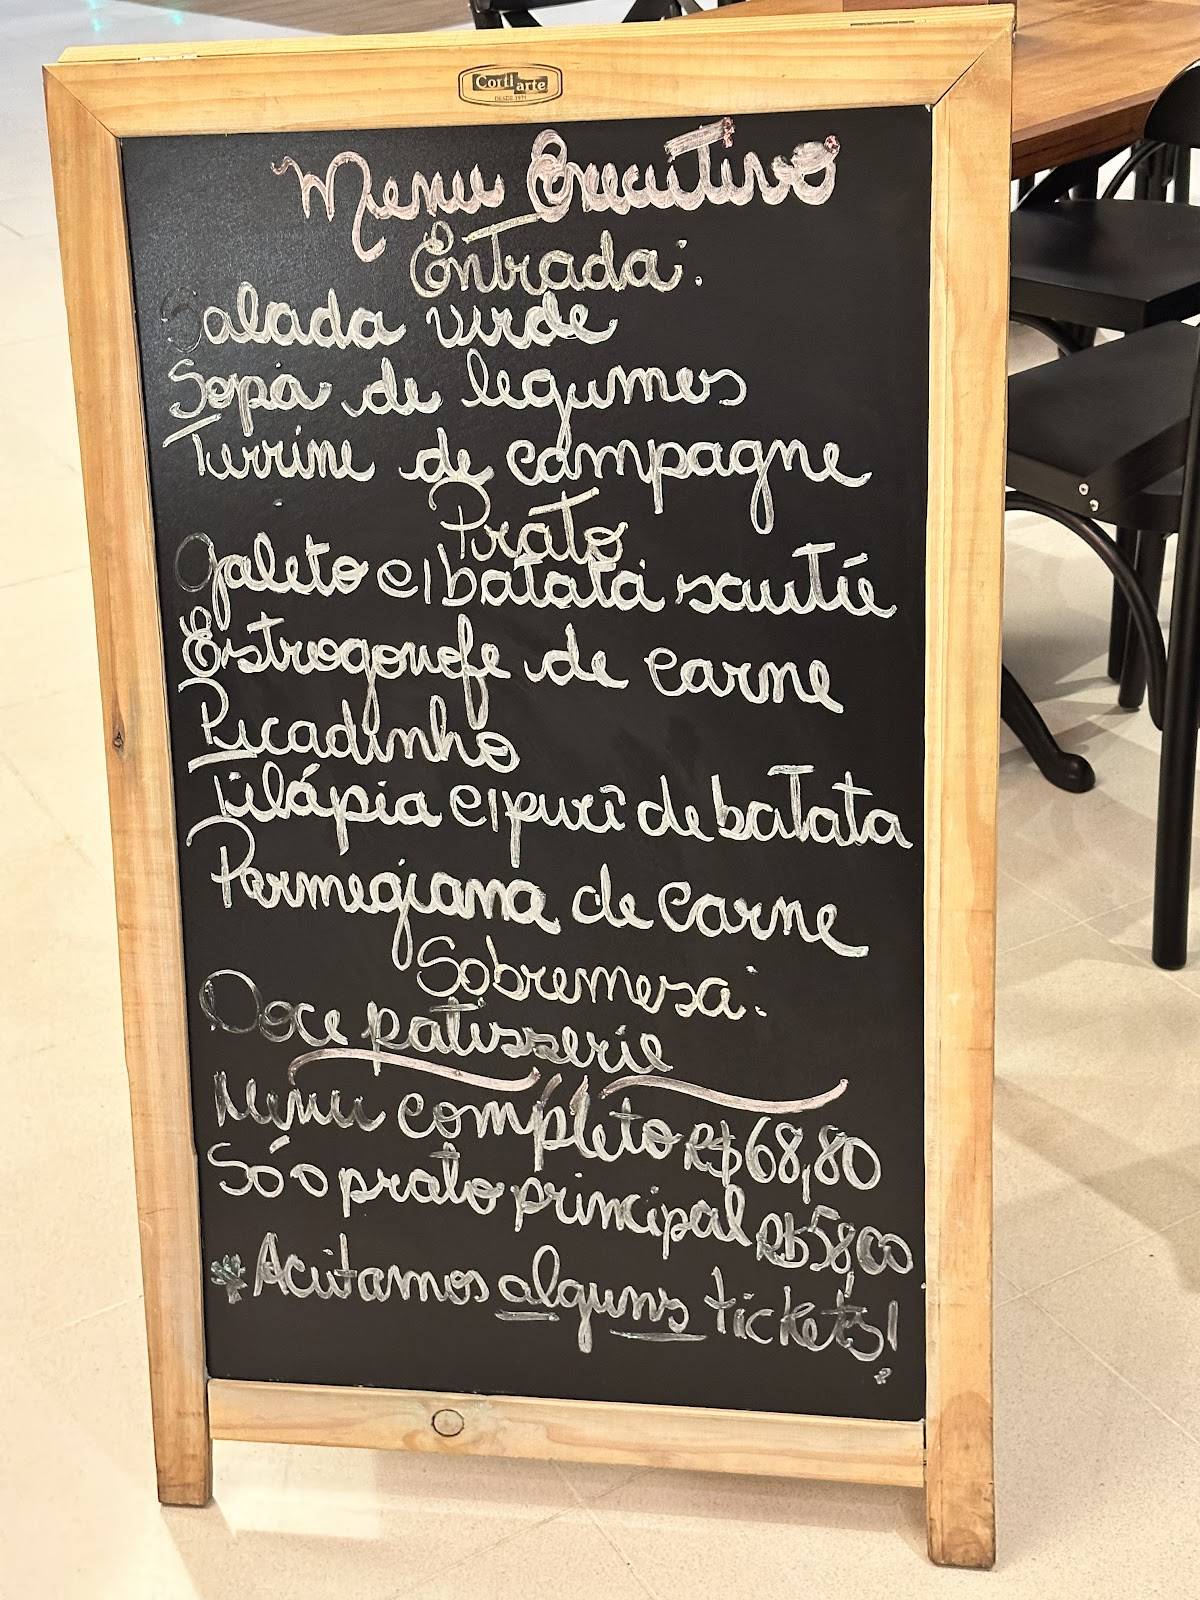 Cortiarte
DESDE 1971
Menu Executivo
Entrada:
Salada verde
Sopa de legumes
Terrine de campagne
Prato
Galeto c/ batata sautée
Estrogonofe de carne
Picadinho
Tilápia c/ purê de batata
Parmegiana de carne
Sobremesa:
Doce patisserie
Menu completo R$68,80
Só o prato principal R$58,00
*Aceitamos alguns tickets!